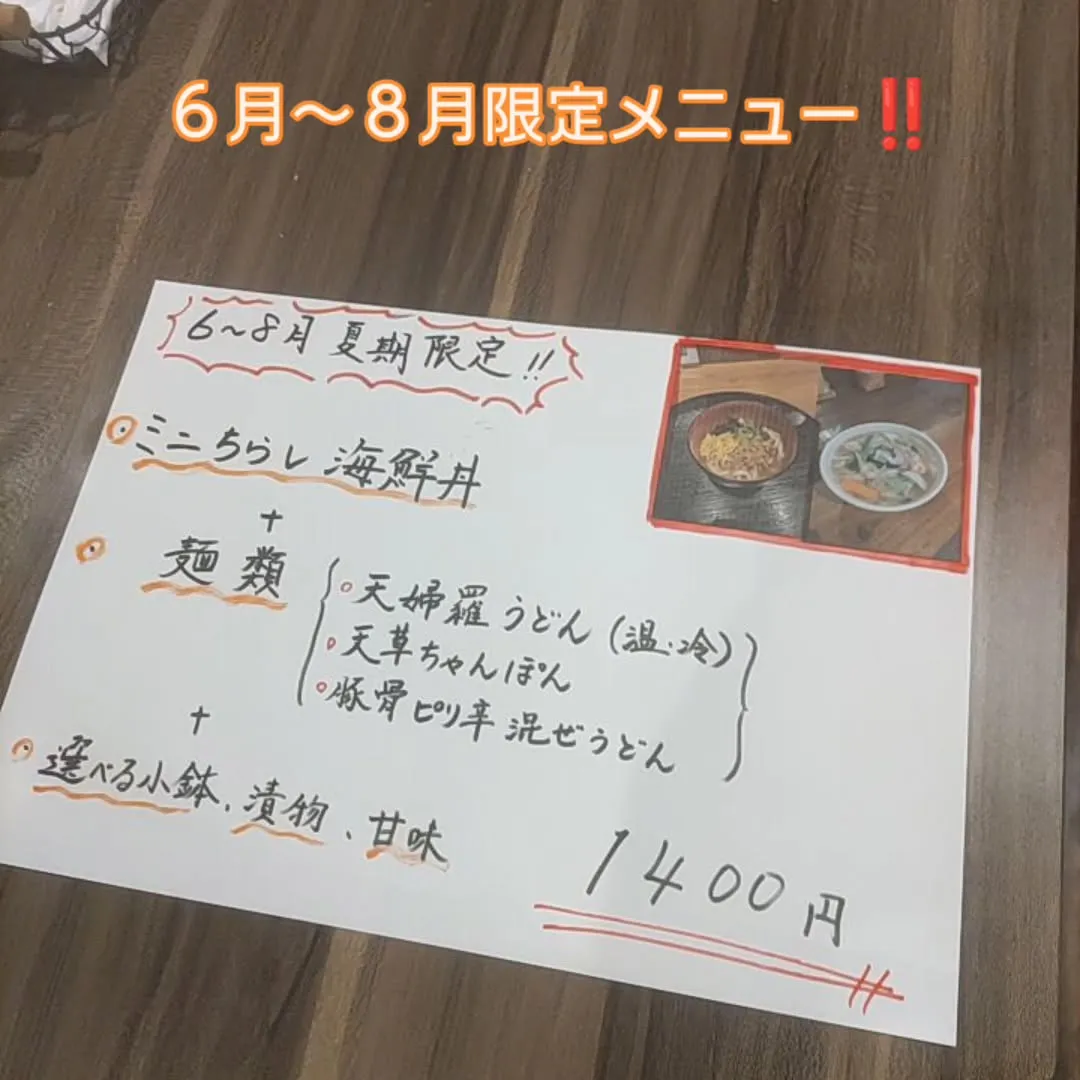 ６月～８月限定メニュー‼️
6～8月 夏期限定!!
ミニちらし海鮮丼
+
麺類
天婦羅うどん(温・冷)
天草ちゃんぽん
豚骨ピリ辛混ぜうどん
+
選べる小鉢、漬物、甘味
1400円